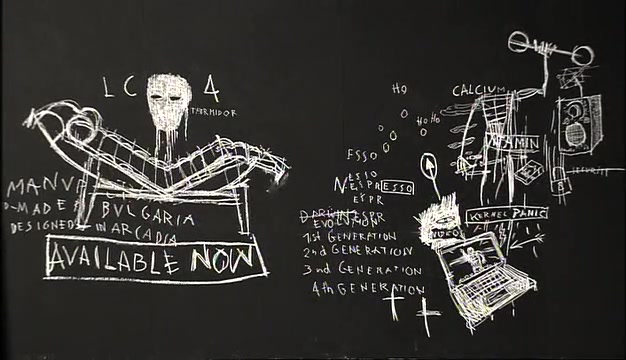 LC 4
THERMIDOR
MANU
MADE
BULGARIA
DESIGNED IN ARCADIA
AVAILABLE NOW
Ho
Ho Ho
ESSO
NESPRESSO
ESPR
DARWIN ESPR
EVOLUTION
1st GENERATION
2nd GENERATION
3nd GENERATION
4th GENERATION
CALCIUM
VITAMIN
SECURITY
KERNEL PANIC
VIDEO